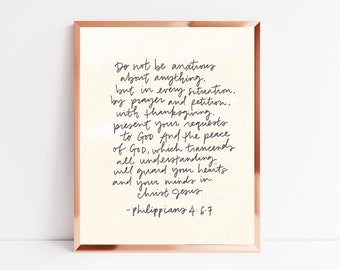 Do not be anxious
about anything,
but in every situation,
by prayer and petition,
with thanksgiving,
present your requests
to God And the peace
of God, which trancends
all understanding
will guard your hearts
and your minds in
Christ Jesus
-philippians 4:6-7